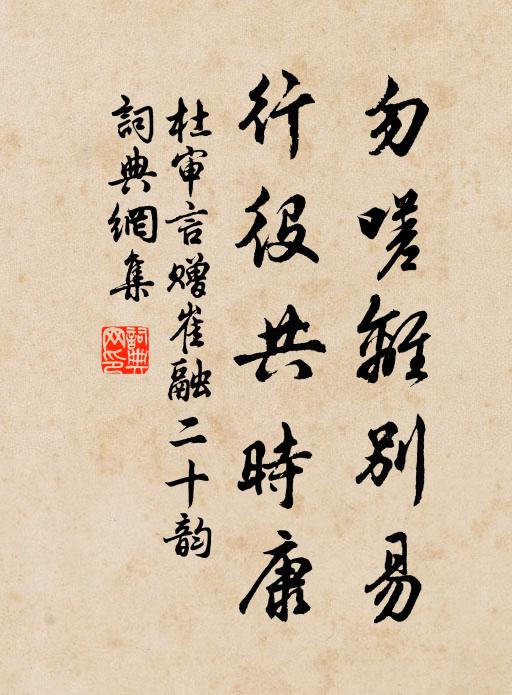 勿嗟離别易
行役共時康
杜审言赠崔融二十韵
詞典網集
詞典网印